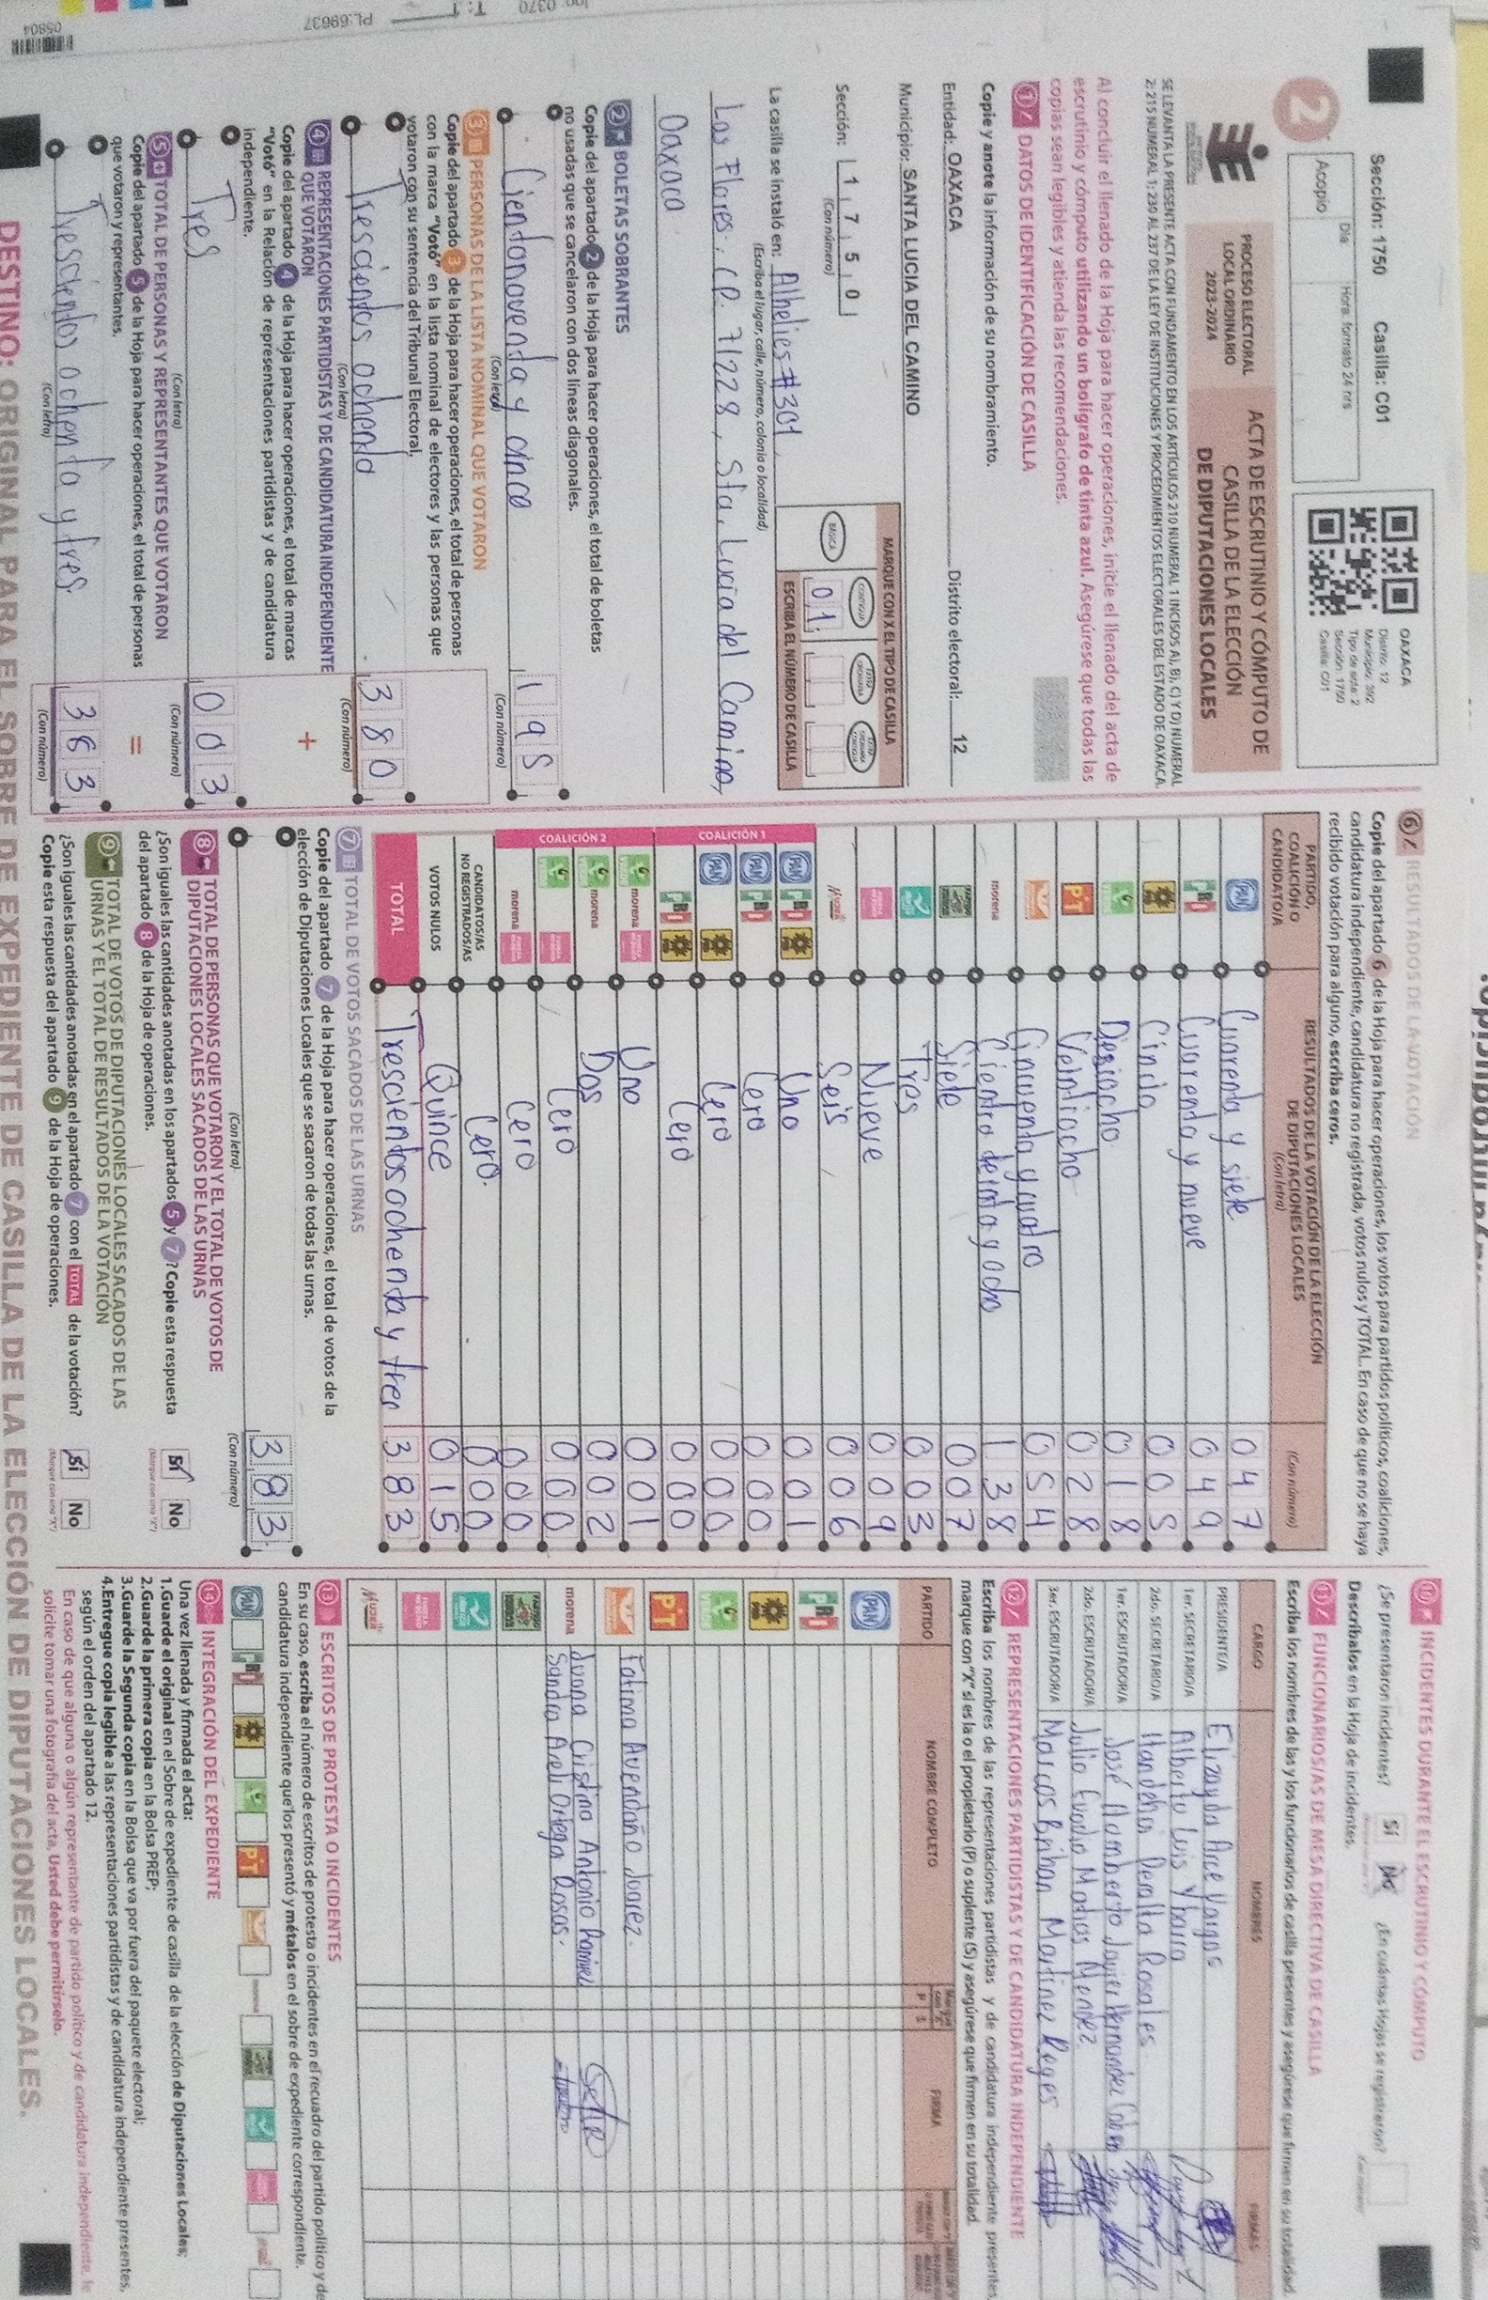 Sección: 1750 Casilla: C01
Día Hora: formato 24 hrs
Acopio
2
OAXACA
Distrito: 12
Municipio: 392
Tipo de acta: 2
Sección: 1750
Casilla: C01
PROCESO ELECTORAL
LOCAL ORDINARIO
2023-2024
ACTA DE ESCRUTINIO Y CÓMPUTO DE
CASILLA DE LA ELECCIÓN
DE DIPUTACIONES LOCALES
SE LEVANTA LA PRESENTE ACTA CON FUNDAMENTO EN LOS ARTÍCULOS 210 NUMERAL 1 INCISOS A), B), C) Y D) NUMERAL
2; 215 NUMERAL 1; 230 AL 237 DE LA LEY DE INSTITUCIONES Y PROCEDIMIENTOS ELECTORALES DEL ESTADO DE OAXACA.
Al concluir el llenado de la Hoja para hacer operaciones, inicie el llenado del acta de
escrutinio y cómputo utilizando un bolígrafo de tinta azul. Asegúrese que todas las
copias sean legibles y atienda las recomendaciones.
1 DATOS DE IDENTIFICACIÓN DE CASILLA
Copie y anote la información de su nombramiento.
Entidad: OAXACA Distrito electoral: 12
Municipio: SANTA LUCIA DEL CAMINO
Sección: 1 7 5 0
(Con número)
MARQUE CON X EL TIPO DE CASILLA
BÁSICA CONTIGUA
0 1
ESCRIBA EL NÚMERO DE CASILLA
La casilla se instaló en: Alhelies #301,
(Escriba el lugar, calle, número, colonia o localidad)
Las Flores, C.P. 71228, Sta. Lucia del Camino,
Oaxaca
2 BOLETAS SOBRANTES
Copie del apartado 2 de la Hoja para hacer operaciones, el total de boletas
no usadas que se cancelaron con dos líneas diagonales.
Cientonoventa y cinco 195
(Con letra) (Con número)
3 PERSONAS DE LA LISTA NOMINAL QUE VOTARON
Copie del apartado 3 de la Hoja para hacer operaciones, el total de personas
con la marca "Votó" en la lista nominal de electores y las personas que
votaron con su sentencia del Tribunal Electoral.
Trescientos ochenta 380
(Con letra) (Con número)
4 REPRESENTACIONES PARTIDISTAS Y DE CANDIDATURA INDEPENDIENTE
QUE VOTARON
Copie del apartado 4 de la Hoja para hacer operaciones, el total de marcas
"Votó" en la Relación de representaciones partidistas y de candidatura
independiente.
+
Tres 003
(Con letra) (Con número)
5 TOTAL DE PERSONAS Y REPRESENTANTES QUE VOTARON
Copie del apartado 5 de la Hoja para hacer operaciones, el total de personas
que votaron y representantes.
=
Trescientos ochenta y tres. 383
(Con letra) (Con número)
6 RESULTADOS DE LA VOTACIÓN
Copie del apartado 6 de la Hoja para hacer operaciones, los votos para partidos políticos, coaliciones,
candidatura independiente, candidatura no registrada, votos nulos y TOTAL. En caso de que no se haya
recibido votación para alguno, escriba ceros.
PARTIDO, COALICIÓN O CANDIDATO/A
RESULTADOS DE LA VOTACIÓN DE LA ELECCIÓN DE DIPUTACIONES LOCALES
(Con letra) (Con número)
PAN Cuarenta y siete 047
PRI Cuarenta y nueve 049
PRD Cinco 005
Dieciocho 018
PT Veintiocho 028
Cincuenta y cuatro 054
morena Cientro treinta y ocho 138
Siete 007
Tres 003
Nueve 009
Mujer Seis 006
COALICIÓN 1
PAN PRI PRD Uno 001
PAN PRI Cero 000
PAN PRD Cero 000
PRI PRD Cero 000
COALICIÓN 2
morena Uno 001
morena Dos 002
Cero 000
morena Cero 000
CANDIDATOS/AS NO REGISTRADOS/AS Cero. 000
VOTOS NULOS Quince 015
TOTAL Trescientos ochenta y tres 383
7 TOTAL DE VOTOS SACADOS DE LAS URNAS
Copie del apartado 7 de la Hoja para hacer operaciones, el total de votos de la
elección de Diputaciones Locales que se sacaron de todas las urnas.
383
(Con letra) (Con número)
8 TOTAL DE PERSONAS QUE VOTARON Y EL TOTAL DE VOTOS DE
DIPUTACIONES LOCALES SACADOS DE LAS URNAS
¿Son iguales las cantidades anotadas en los apartados 5 y 7? Copie esta respuesta
del apartado 8 de la Hoja de operaciones.
Sí No
9 TOTAL DE VOTOS DE DIPUTACIONES LOCALES SACADOS DE LAS
URNAS Y EL TOTAL DE RESULTADOS DE LA VOTACIÓN
¿Son iguales las cantidades anotadas en el apartado 7 con el TOTAL de la votación?
Copie esta respuesta del apartado 9 de la Hoja de operaciones.
Sí No
10 INCIDENTES DURANTE EL ESCRUTINIO Y CÓMPUTO
¿Se presentaron incidentes? Sí No ¿En cuántas Hojas se registraron?
Descríbalos en la Hoja de incidentes.
11 FUNCIONARIOS/AS DE MESA DIRECTIVA DE CASILLA
Escriba los nombres de las y los funcionarios de casilla presentes y asegúrese que firmen en su totalidad.
CARGO NOMBRES FIRMAS
PRESIDENTE/A Elizayda Arce Vargas
1er. SECRETARIO/A Alberto Luis Ybarra
2do. SECRETARIO/A Peralta Rosales
1er. ESCRUTADOR/A José Humberto Javier Hernandez
2do. ESCRUTADOR/A Julio Evodio Matias Mendez
3er. ESCRUTADOR/A Marcos Brihan Martinez Reyes
12 REPRESENTACIONES PARTIDISTAS Y DE CANDIDATURA INDEPENDIENTE
Escriba los nombres de las representaciones partidistas y de candidatura independiente presentes,
marque con "X" si es la o el propietario (P) o suplente (S) y asegúrese que firmen en su totalidad.
PARTIDO NOMBRE COMPLETO P S FIRMA
PAN
PRI
PRD
PT
Fatima Avendaño Juarez.
morena Juana Cristina Antonio Ramirez
Sandra Areli Ortega Rosas.
Mujer
13 ESCRITOS DE PROTESTA O INCIDENTES
En su caso, escriba el número de escritos de protesta o incidentes en el recuadro del partido político y de
candidatura independiente que los presentó y métalos en el sobre de expediente correspondiente.
PAN PRI PRD PT
14 INTEGRACIÓN DEL EXPEDIENTE
Una vez llenada y firmada el acta:
1.Guarde el original en el Sobre de expediente de casilla de la elección de Diputaciones Locales;
2.Guarde la primera copia en la Bolsa PREP;
3.Guarde la Segunda copia en la Bolsa que va por fuera del paquete electoral;
4.Entregue copia legible a las representaciones partidistas y de candidatura independiente presentes,
según el orden del apartado 12.
En caso de que alguna o algún representante de partido político y de candidatura independiente, le
solicite tomar una fotografía del acta, Usted debe permitírselo.
DESTINO: ORIGINAL PARA EL SOBRE DE EXPEDIENTE DE CASILLA DE LA ELECCIÓN DE DIPUTACIONES LOCALES.
05804
PL:69637